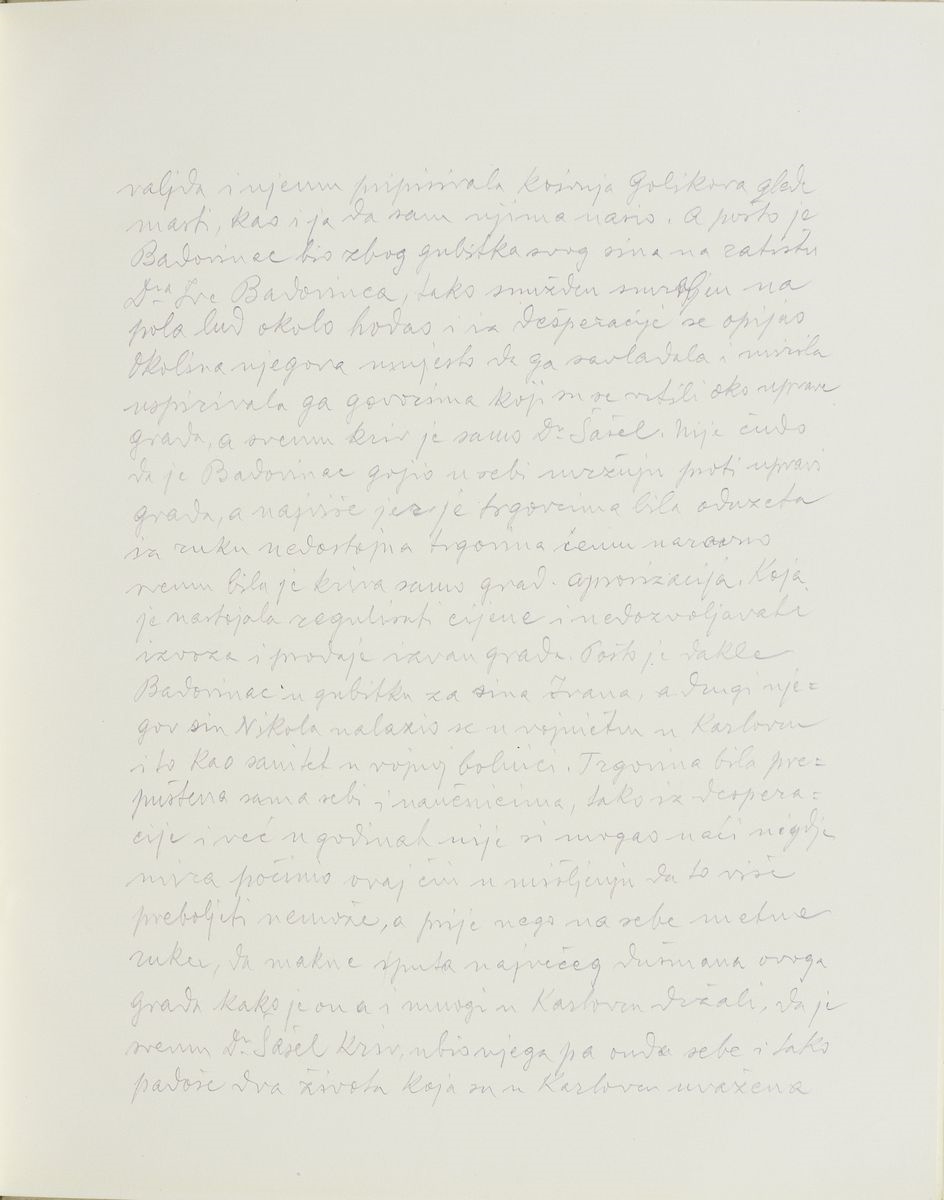 valjda i njemu pripisivala košnja Golikova glede
masti, kao i ja da sam njima nasio. A pošto je
Badovinac bio zbog gubitka svog sina na ratištu
Dra Ive Badovinca, tako smužden smrvljen na
pola lud okolo hodao i iz dešperacije se opijao
Okolina njegova umjesto da ga savladala i mirila
uspirivala ga govorima koji su se vrtili oko uprave
grada, a svemu kriv je samo Dr. Šašel. Nije čudo
da je Badovinac gojio u sebi mržnju proti upravi
grada, a najviše jer je trgovcima bila oduzeta
iz ruku nedostojna trgovina čemu naravno
svemu bila je kriva samo grad. aprovizacija. Koja
je nastojala regulisati cijene i nedozvoljavati
izvoza i prodaje izvan grada. Pošto je dakle
Badovinac u gubitku za sina Ivana, a drugi nje=
gov sin Nikola nalazio se u vojništvu u Karlovcu
i to kao sanitet u vojnoj bolnici. Trgovina bila pre=
puštena sama sebi i naučnicima, tako iz despera=
cije i već u godinah nije si mogao naći nigdje
mira počinio ovaj čin u mišljenju da to više
preboljeti nemože, a prije nego na sebe metne
ruku, da makne s puta najvećeg dušmana ovoga
grada kako je on a i mnogi u Karlovcu držali, da je
svemu Dr. Šašel kriv, ubio njega pa onda sebe i tako
padoše dva života koja su u Karlovcu uvažena